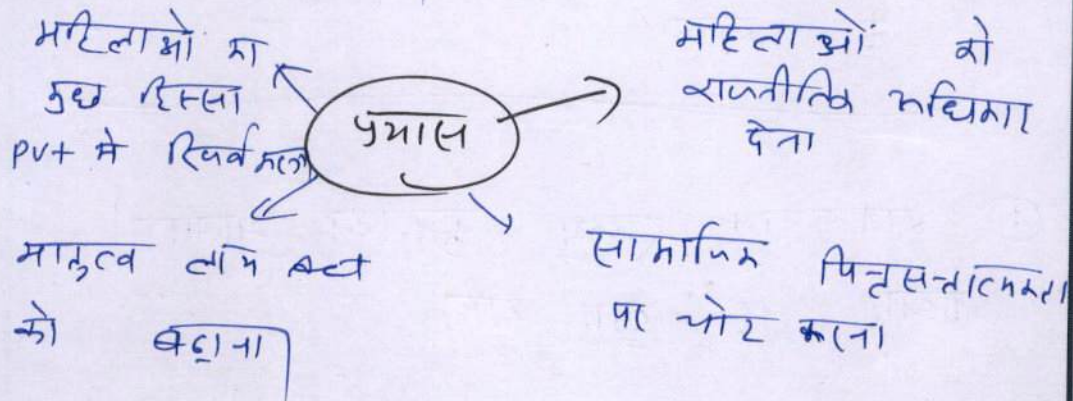 महिलाओ का
कुछ हिस्सा
PVT मे रिजर्व करना
प्रयास
महिलाओं को
राजनीतिक अधिकार
देना
मातृत्व लाभ
को बढ़ाना
सामाजिक पितृसत्तात्मकता
पर चोट करना